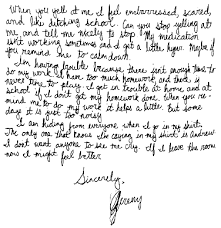 When you yell at me I feel embarressed, scared,
and like ditching school. Can you stop yelling at
me, and tell me nicely to stop if my medication
isn't working sometimes and I get a little hyper. Maybe if
you remind me to calm down.
I am having trouble because there isn't enough time to
do my work. We have too much homework and there is
never time to play. I get in trouble at home and at
school if I don't get my homework done. When you re-
mind me to do my work it helps a little. But some
days it is just too noisy
I am hiding from everyone when I go in my shirt.
The only one that knows I'm crying in my shirt is Andrew
I dont want anyone to see me cry. If I leave the room
now I might feel better
Sincerely,
Jeremy